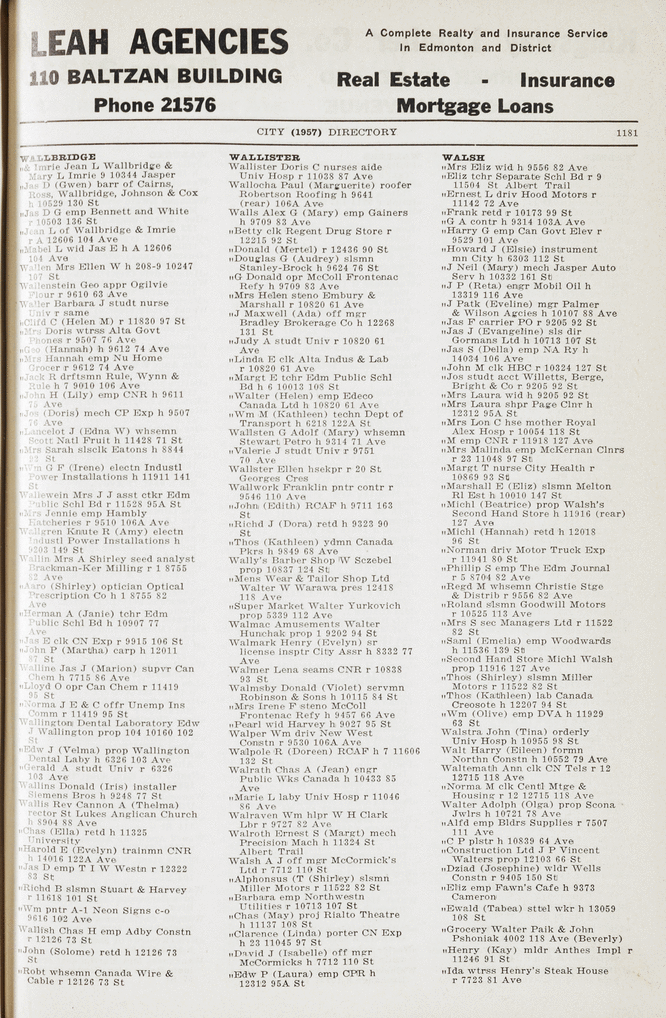 LEAH AGENCIES
110 BALTZAN BUILDING
Phone 21576
A Complete Realty and Insurance Service
In Edmonton and District
Real Estate - Insurance
Mortgage Loans
CITY (1957) DIRECTORY 1181
WALLBRIDGE
„& Imrie Jean L Wallbridge &
Mary L Imrie 9 10344 Jasper
„Jas D (Gwen) barr of Cairns,
Ross, Wallbridge, Johnson & Cox
h 10529 130 St
„Jas D G emp Bennett and White
r 10503 136 St
„Jean L of Wallbridge & Imrie
r A 12606 104 Ave
„Mabel L wid Jas E h A 12606
104 Ave
Wallen Mrs Ellen W h 208-9 10247
107 St
Wallenstein Geo appr Ogilvie
Flour r 9610 63 Ave
Waller Barbara J studt nurse
Univ r same
„Cliff C (Helen M) r 11830 97 St
„Mrs Doris wtrss Alta Govt
Phones r 9507 76 Ave
„Geo (Hannah) h 9612 74 Ave
„Mrs Hannah emp Nu Home
Grocer r 9612 74 Ave
„Jack R drftsmn Rule, Wynn &
Rule h 7 9010 106 Ave
„John H (Lily) emp CNR h 9611
75 Ave
„Jos (Doris) mech CP Exp h 9507
76 Ave
„Lancelot J (Edna W) whsemn
Scott Natl Fruit h 11428 71 St
„Mrs Sarah slsclk Eatons h 8844
92 St
„Wm G F (Irene) electn Industl
Power Installations h 11911 141
St
Wallewein Mrs J J asst ctkr Edm
Public Schl Bd r 11528 95A St
„Mrs Jennie emp Hambly
Hatcheries r 9510 106A Ave
Wallgren Knute R (Amy) electn
Industl Power Installations h
9203 149 St
Wallin Mrs A Shirley seed analyst
Brackman-Ker Milling r 1 8755
82 Ave
„Aaro (Shirley) optician Optical
Prescription Co h 1 8755 82
Ave
„Herman A (Janie) tchr Edm
Public Schl Bd h 10907 77
Ave
„Jas E clk CN Exp r 9915 106 St
„John P (Martha) carp h 12011
87 St
Walline Jas J (Marion) supvr Can
Chem h 7715 86 Ave
„Lloyd O opr Can Chem r 11419
95 St
„Norma J E & C offr Unemp Ins
Comm r 11419 95 St
Wallington Dental Laboratory Edw
J Wallington prop 104 10160 102
St
„Edw J (Velma) prop Wallington
Dental Laby h 6326 103 Ave
„Gerald A studt Univ r 6326
103 Ave
Wallins Donald (Iris) installer
Siemens Bros h 9248 77 St
Wallis Rev Cannon A (Thelma)
rector St Lukes Anglican Church
h 8904 88 Ave
„Chas (Ella) retd h 11325
University
„Harold E (Evelyn) trainmn CNR
h 14016 122A Ave
„Jas D emp T I W Westn r 12322
83 St
„Richd B slsmn Stuart & Harvey
r 11618 101 St
„Wm pntr A-1 Neon Signs c-o
9616 102 Ave
Wallish Chas H emp Adby Constn
r 12126 73 St
„John (Solome) retd h 12126 73
St
„Robt whsemn Canada Wire &
Cable r 12126 73 St
WALLISTER
Wallister Doris C nurses aide
Univ Hosp r 11038 87 Ave
Wallocha Paul (Marguerite) roofer
Robertson Roofing h 9641
(rear) 106A Ave
Walls Alex G (Mary) emp Gainers
h 9709 83 Ave
„Betty clk Regent Drug Store r
12215 92 St
„Donald (Mertel) r 12436 90 St
„Douglas G (Audrey) slsmn
Stanley-Brock h 9624 76 St
„G Donald opr McColl Frontenac
Refy h 9709 83 Ave
„Mrs Helen steno Embury &
Marshall r 10820 61 Ave
„J Maxwell (Ada) off mgr
Bradley Brokerage Co h 12268
131 St
„Judy A studt Univ r 10820 61
Ave
„Linda E clk Alta Indus & Lab
r 10820 61 Ave
„Margt E tchr Edm Public Schl
Bd h 6 10013 108 St
„Walter (Helen) emp Edeco
Canada Ltd h 10820 61 Ave
„Wm M (Kathleen) techn Dept of
Transport h 6218 122A St
Wallsten G Adolf (Mary) whsemn
Stewart Petro h 9314 71 Ave
„Valerie J studt Univ r 9751
70 Ave
Wallster Ellen hsekpr r 20 St.
Georges Cres
Wallwork Franklin pntr contr r
9546 110 Ave
„John (Edith) RCAF h 9711 163
St
„Richd J (Dora) retd h 9323 90
St
„Thos (Kathleen) ydmn Canada
Pkrs h 9849 68 Ave
Wally's Barber Shop W Sczebel
prop 10837 124 St
„Mens Wear & Tailor Shop Ltd
Walter W Warawa pres 12418
118 Ave
„Super Market Walter Yurkovich
prop 5339 112 Ave
Walmac Amusements Walter
Hunchak prop 1 9202 94 St
Walmark Henry (Evelyn) sr
license insptr City Assr h 8332 77
Ave
Walmer Lena seams CNR r 10838
93 St
Walmsby Donald (Violet) servmn
Robinson & Sons h 10115 84 St
„Mrs Irene F steno McColl
Frontenac Refy h 9457 66 Ave
„Pearl wid Harvey h 9027 95 St
Walper Wm driv New West
Constn r 9530 106A Ave
Walpole R (Doreen) RCAF h 7 11606
132 St
Walrath Chas A (Jean) engr
Public Wks Canada h 10433 85
Ave
„Marie L laby Univ Hosp r 11046
86 Ave
Walraven Wm hlpr W H Clark
Lbr r 9727 82 Ave
Walroth Ernest S (Margt) mech
Precision Mach h 11324 St
Albert Trail
Walsh A J off mgr McCormick's
Ltd r 7712 110 St
„Alphonsus (T (Shirley) slsmn
Miller Motors r 11522 82 St
„Barbara emp Northwestn
Utilities r 10713 107 St
„Chas (May) proj Rialto Theatre
h 11137 108 St
„Clarence (Linda) porter CN Exp
h 23 11045 97 St
„David J (Isabelle) off mgr
McCormicks h 7712 110 St
„Edw P (Laura) emp CPR h
12312 95A St
WALSH
„Mrs Eliz wid h 9556 82 Ave
„Eliz tchr Separate Schl Bd r 9
11504 St Albert Trail
„Ernest L driv Hood Motors r
11142 72 Ave
„Frank retd r 10173 99 St
„G A contr h 9314 103A Ave
„Harry G emp Can Govt Elev r
9529 101 Ave
„Howard J (Elsie) instrument
mn City h 6303 112 St
„J Neil (Mary) mech Jasper Auto
Serv h 10332 161 St
„J P (Reta) engr Mobil Oil h
13319 116 Ave
„J Patk (Eveline) mgr Palmer
& Wilson Agcies h 10107 88 Ave
„Jas F carrier PO r 9205 92 St
„Jas J (Evangeline) sls dir
Gormans Ltd h 10713 107 St
„Jas S (Della) emp NA Ry h
14034 106 Ave
„John M clk HBC r 10324 127 St
„Jos studt acct Willetts, Berge,
Bright & Co r 9205 92 St
„Mrs Laura wid h 9205 92 St
„Mrs Laura shpr Page Clnr h
12312 95A St
„Mrs Lon C hse mother Royal
Alex Hosp r 10054 118 St
„M emp CNR r 11918 127 Ave
„Mrs Malinda emp McKernan Clnrs
r 23 11048 97 St
„Margt T nurse City Health r
10869 93 St
„Marshall E (Eliz) slsmn Melton
Rl Est h 10010 147 St
„Michl (Beatrice) prop Walsh's
Second Hand Store h 11916 (rear)
127 Ave
„Michl (Hannah) retd h 12018
96 St
„Norman driv Motor Truck Exp
r 11941 80 St
„Phillip S emp The Edm Journal
r 5 8704 82 Ave
„Regd M whsemn Christie Stge
& Distrib r 9556 82 Ave
„Roland slsmn Goodwill Motors
r 10525 113 Ave
„Mrs S sec Managers Ltd r 11522
82 St
„Saml (Emelia) emp Woodwards
h 11536 139 St
„Second Hand Store Michl Walsh
prop 11916 127 Ave
„Thos (Shirley) slsmn Miller
Motors r 11522 82 St
„Thos (Kathleen) lab Canada
Creosote h 12207 94 St
„Wm (Olive) emp DVA h 11929
63 St
Walstra John (Tina) orderly
Univ Hosp h 10955 98 St
Walt Harry (Eileen) formn
Northn Constn h 10552 79 Ave
Waltemath Ann clk CN Tels r 12
12715 118 Ave
„Norma M clk Centl Mtge &
Housing r 12 12715 118 Ave
Walter Adolph (Olga) prop Scona
Jwlrs h 10721 78 Ave
„Alfd emp Bldrs Supplies r 7507
111 Ave
„C P plstr h 10839 64 Ave
„Construction Ltd J P Vincent
Walters prop 12103 66 St
„Dziad (Josephine) wldr Wells
Constn r 9405 150 St
„Eliz emp Fawn's Cafe h 9373
Cameron
„Ewald (Tabea) sttel wkr h 13059
108 St
„Grocery Walter Paik & John
Pshoniak 4002 118 Ave (Beverly)
„Henry (Kay) mldr Anthes Impl r
11246 91 St
„Ida wtrss Henry's Steak House
r 7723 81 Ave